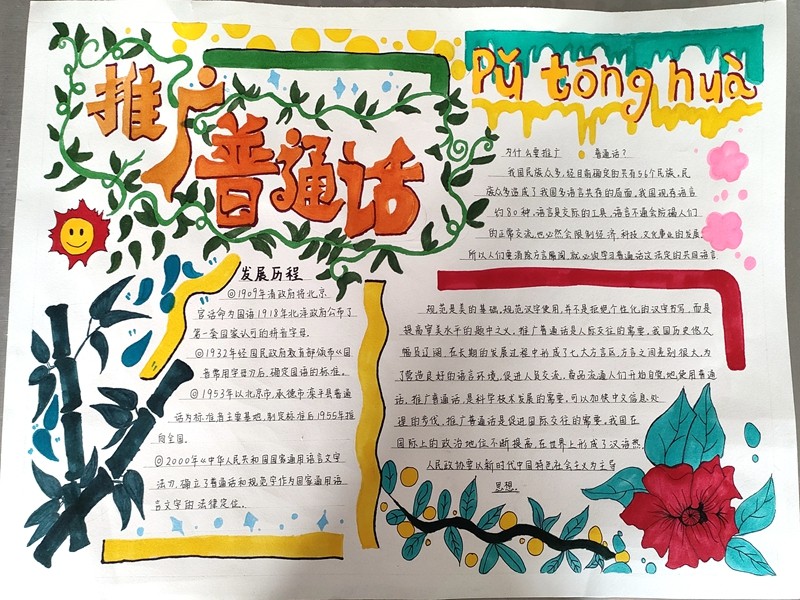 推广
普通话
Pǔ tōng huà
为什么要推广 普通话？
我国民族众多，经目前确定的共有56个民族，民
族众多造成了我国多语言共存的局面，我国现有语言
约80种，语言是交际的工具，语言不通会防碍人们
的正常交流，也必然会限制经济，科技，文化事业的发展
所以人们要消除方言隔阂，就必须学习普通话这法定的共同语言
发展历程
◎1909年清政府将北京
官话命为国语1918年北洋政府公布了
第一套国家认可的拼音字母.
◎1932年经国民政府教育部颁布《国
音常用字母》后，确定国语的标准.
◎1953年以北京市，承德市滦平县普通
话为标准音主要基地，制定标准后1955年推
向全国.
◎2000年《中华人民共和国国家通用语言文字
法》，确立了普通话和规范字作为国家通用语
言文字的法律定位.
规范是美的基础，规范汉字使用，并不是拒绝个性化的汉字书写，而是
提高审美水平的题中之义，推广普通话是人际交往的需要，我国历史悠久
幅员辽阔，在长期的发展过程中形成了七大方言区，方言之间差别很大，为
了营造良好的语言环境，促进人员交流，商品流通人们开始自觉地使用普通
话，推广普通话，是科学技术发展的需要，可以加快中文信息处
理的步伐，推广普通话是促进国际交往的需要，我国在
国际上的政治地位不断提高，在世界上形成了汉语热.
人民政协要以新时代中国特色社会主义为主导
思想.